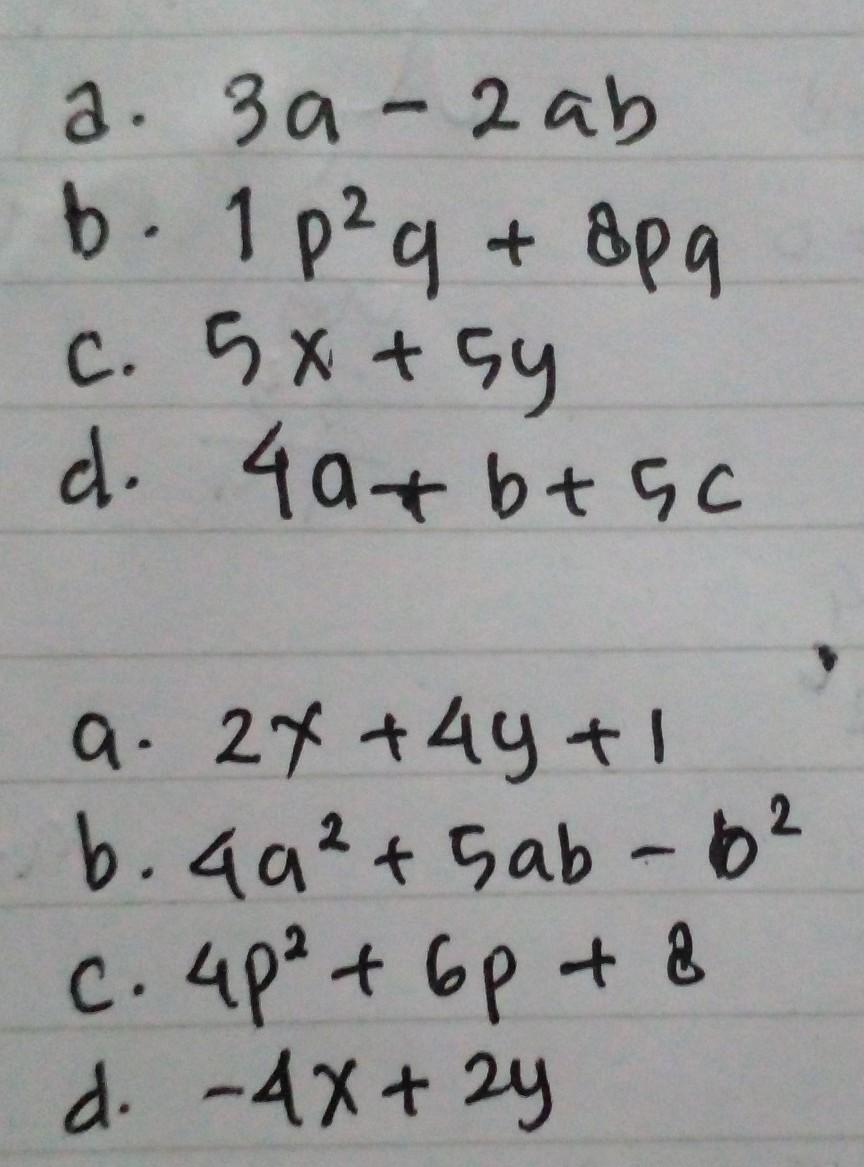 a. 3a - 2ab
b. 1p²q + 8pq
c. 5x + 5y
d. 4a + b + 5c
a. 2x + 4y + 1
b. 4a² + 5ab - b²
c. 4p² + 6p + 8
d. -4x + 2y